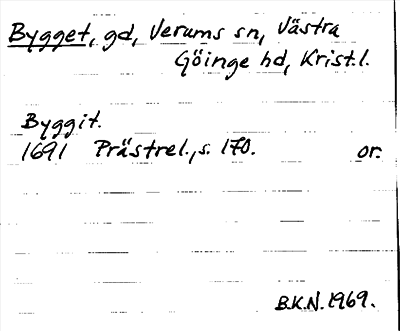 Bygget, gd, Verums sn, Västra
Göinge hd, Krist.l.
Byggit.
1691 Prästrel., s. 170. or.
B.K.N. 1969.